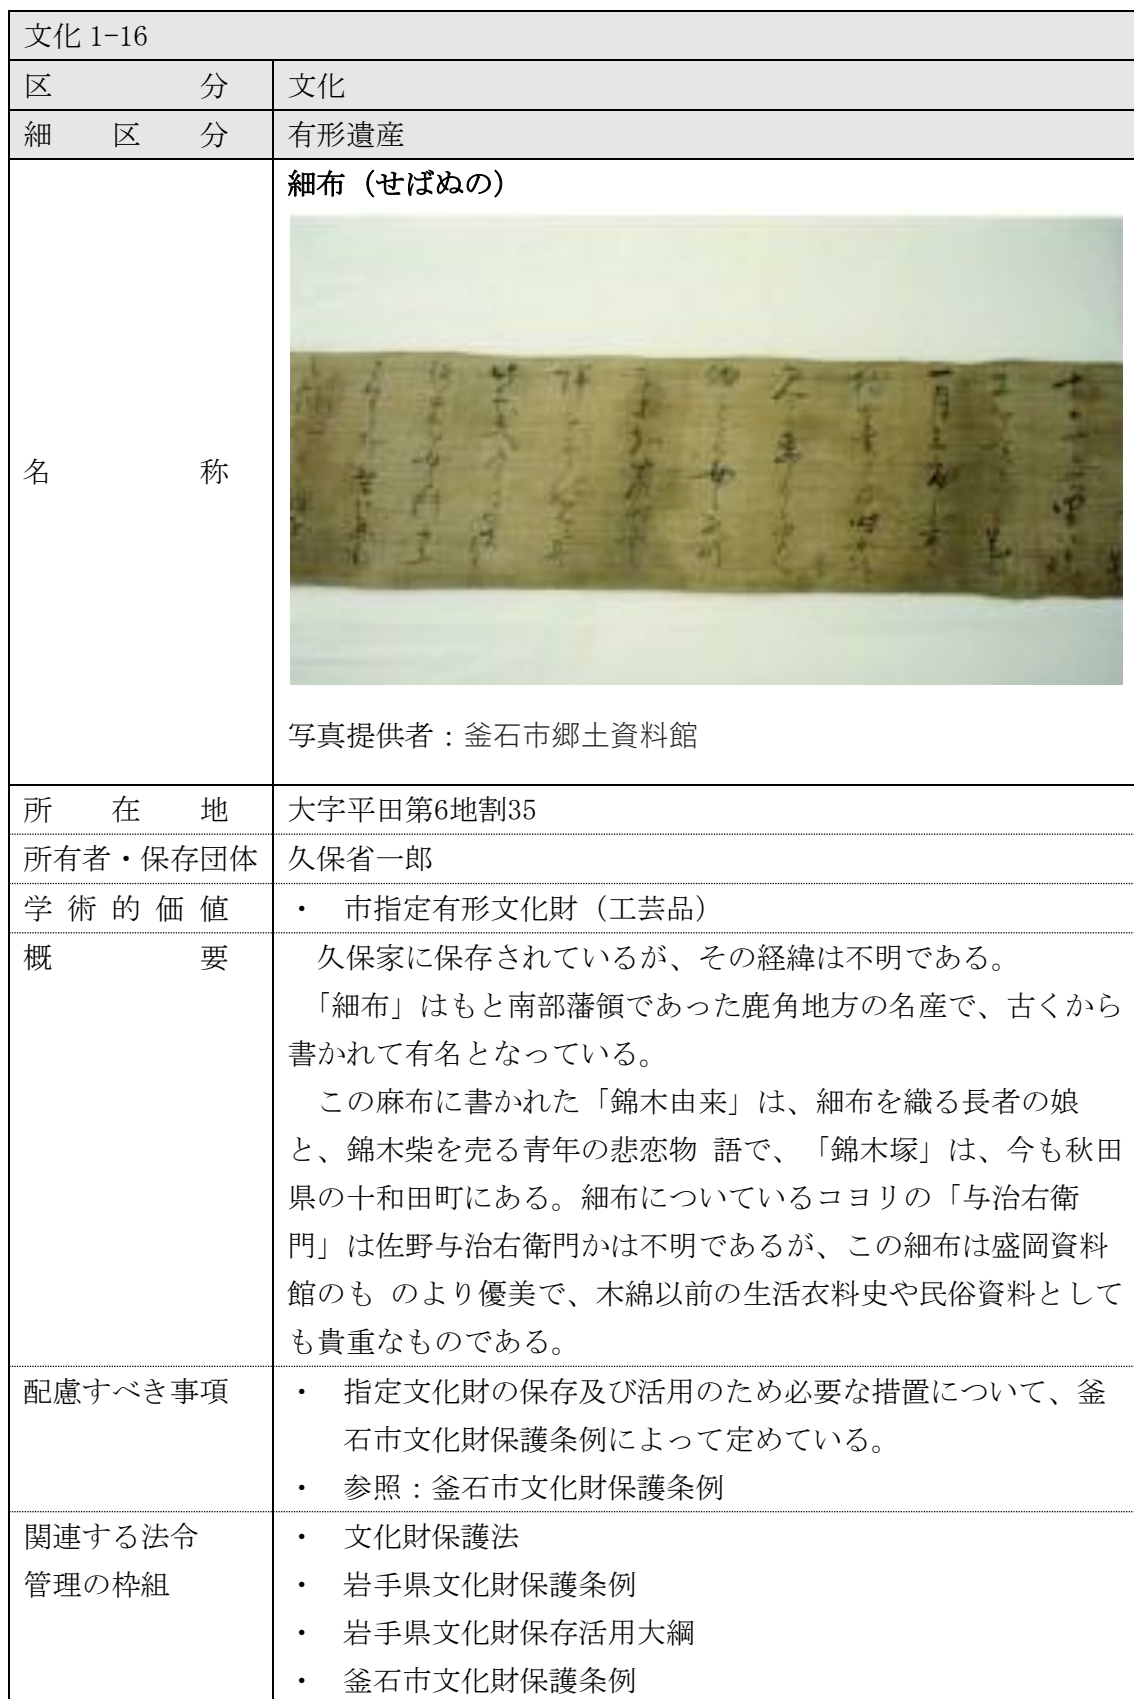 文化 1-16
区分 文化
細区分 有形遺産
名称 細布（せばぬの）
写真提供者：釜石市郷土資料館
所在地 大字平田第6地割35
所有者・保存団体 久保省一郎
学術的価値 ・ 市指定有形文化財（工芸品）
概要 久保家に保存されているが、その経緯は不明である。
「細布」はもと南部藩領であった鹿角地方の名産で、古くから
書かれて有名となっている。
この麻布に書かれた「錦木由来」は、細布を織る長者の娘
と、錦木柴を売る青年の悲恋物 語で、「錦木塚」は、今も秋田
県の十和田町にある。細布についているコヨリの「与治右衛
門」は佐野与治右衛門かは不明であるが、この細布は盛岡資料
館のも のより優美で、木綿以前の生活衣料史や民俗資料として
も貴重なものである。
配慮すべき事項 ・ 指定文化財の保存及び活用のため必要な措置について、釜
石市文化財保護条例によって定めている。
・ 参照：釜石市文化財保護条例
関連する法令 ・ 文化財保護法
管理の枠組 ・ 岩手県文化財保護条例
・ 岩手県文化財保存活用大綱
・ 釜石市文化財保護条例